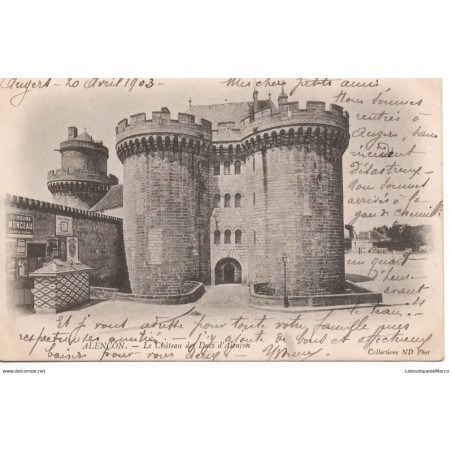 Angers - 20 Avril 1903 -
Mes chers petits amis
Nous sommes
rentrés à
Angers, sans
incident
désastreux -
nous sommes
arrivés à la
gare de
quand
le train
Et je vous adresse pour toute votre famille mes
respectueuses amitiés - j'y ajoute de bons et affectueux
baisers pour vous deux - Yvonne
MONCEAU
ALENÇON. - Le Château des Ducs d'Alençon
Collections ND Phot
www.delcampe.net
LaboutiquedeMarco